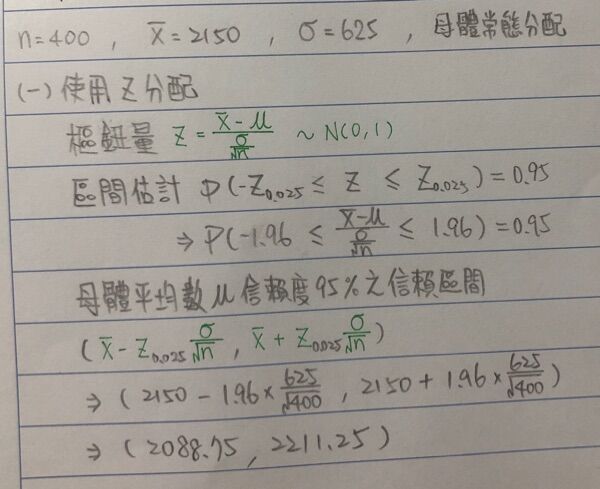 n=400 , X̄=2150 , σ=625 , 母體常態分配
(一) 使用 Z 分配
樞鈕量 Z = (X̄-μ)/(σ/√n) ~ N(0,1)
區間估計 P(-Z₀.₀₂₅ ≤ Z ≤ Z₀.₀₂₅) = 0.95
⇒ P(-1.96 ≤ (X̄-μ)/(σ/√n) ≤ 1.96) = 0.95
母體平均數 μ 信賴度 95% 之信賴區間
(X̄ - Z₀.₀₂₅ σ/√n , X̄ + Z₀.₀₂₅ σ/√n)
⇒ (2150 - 1.96 × 625/√400 , 2150 + 1.96 × 625/√400)
⇒ (2088.75 , 2211.25)